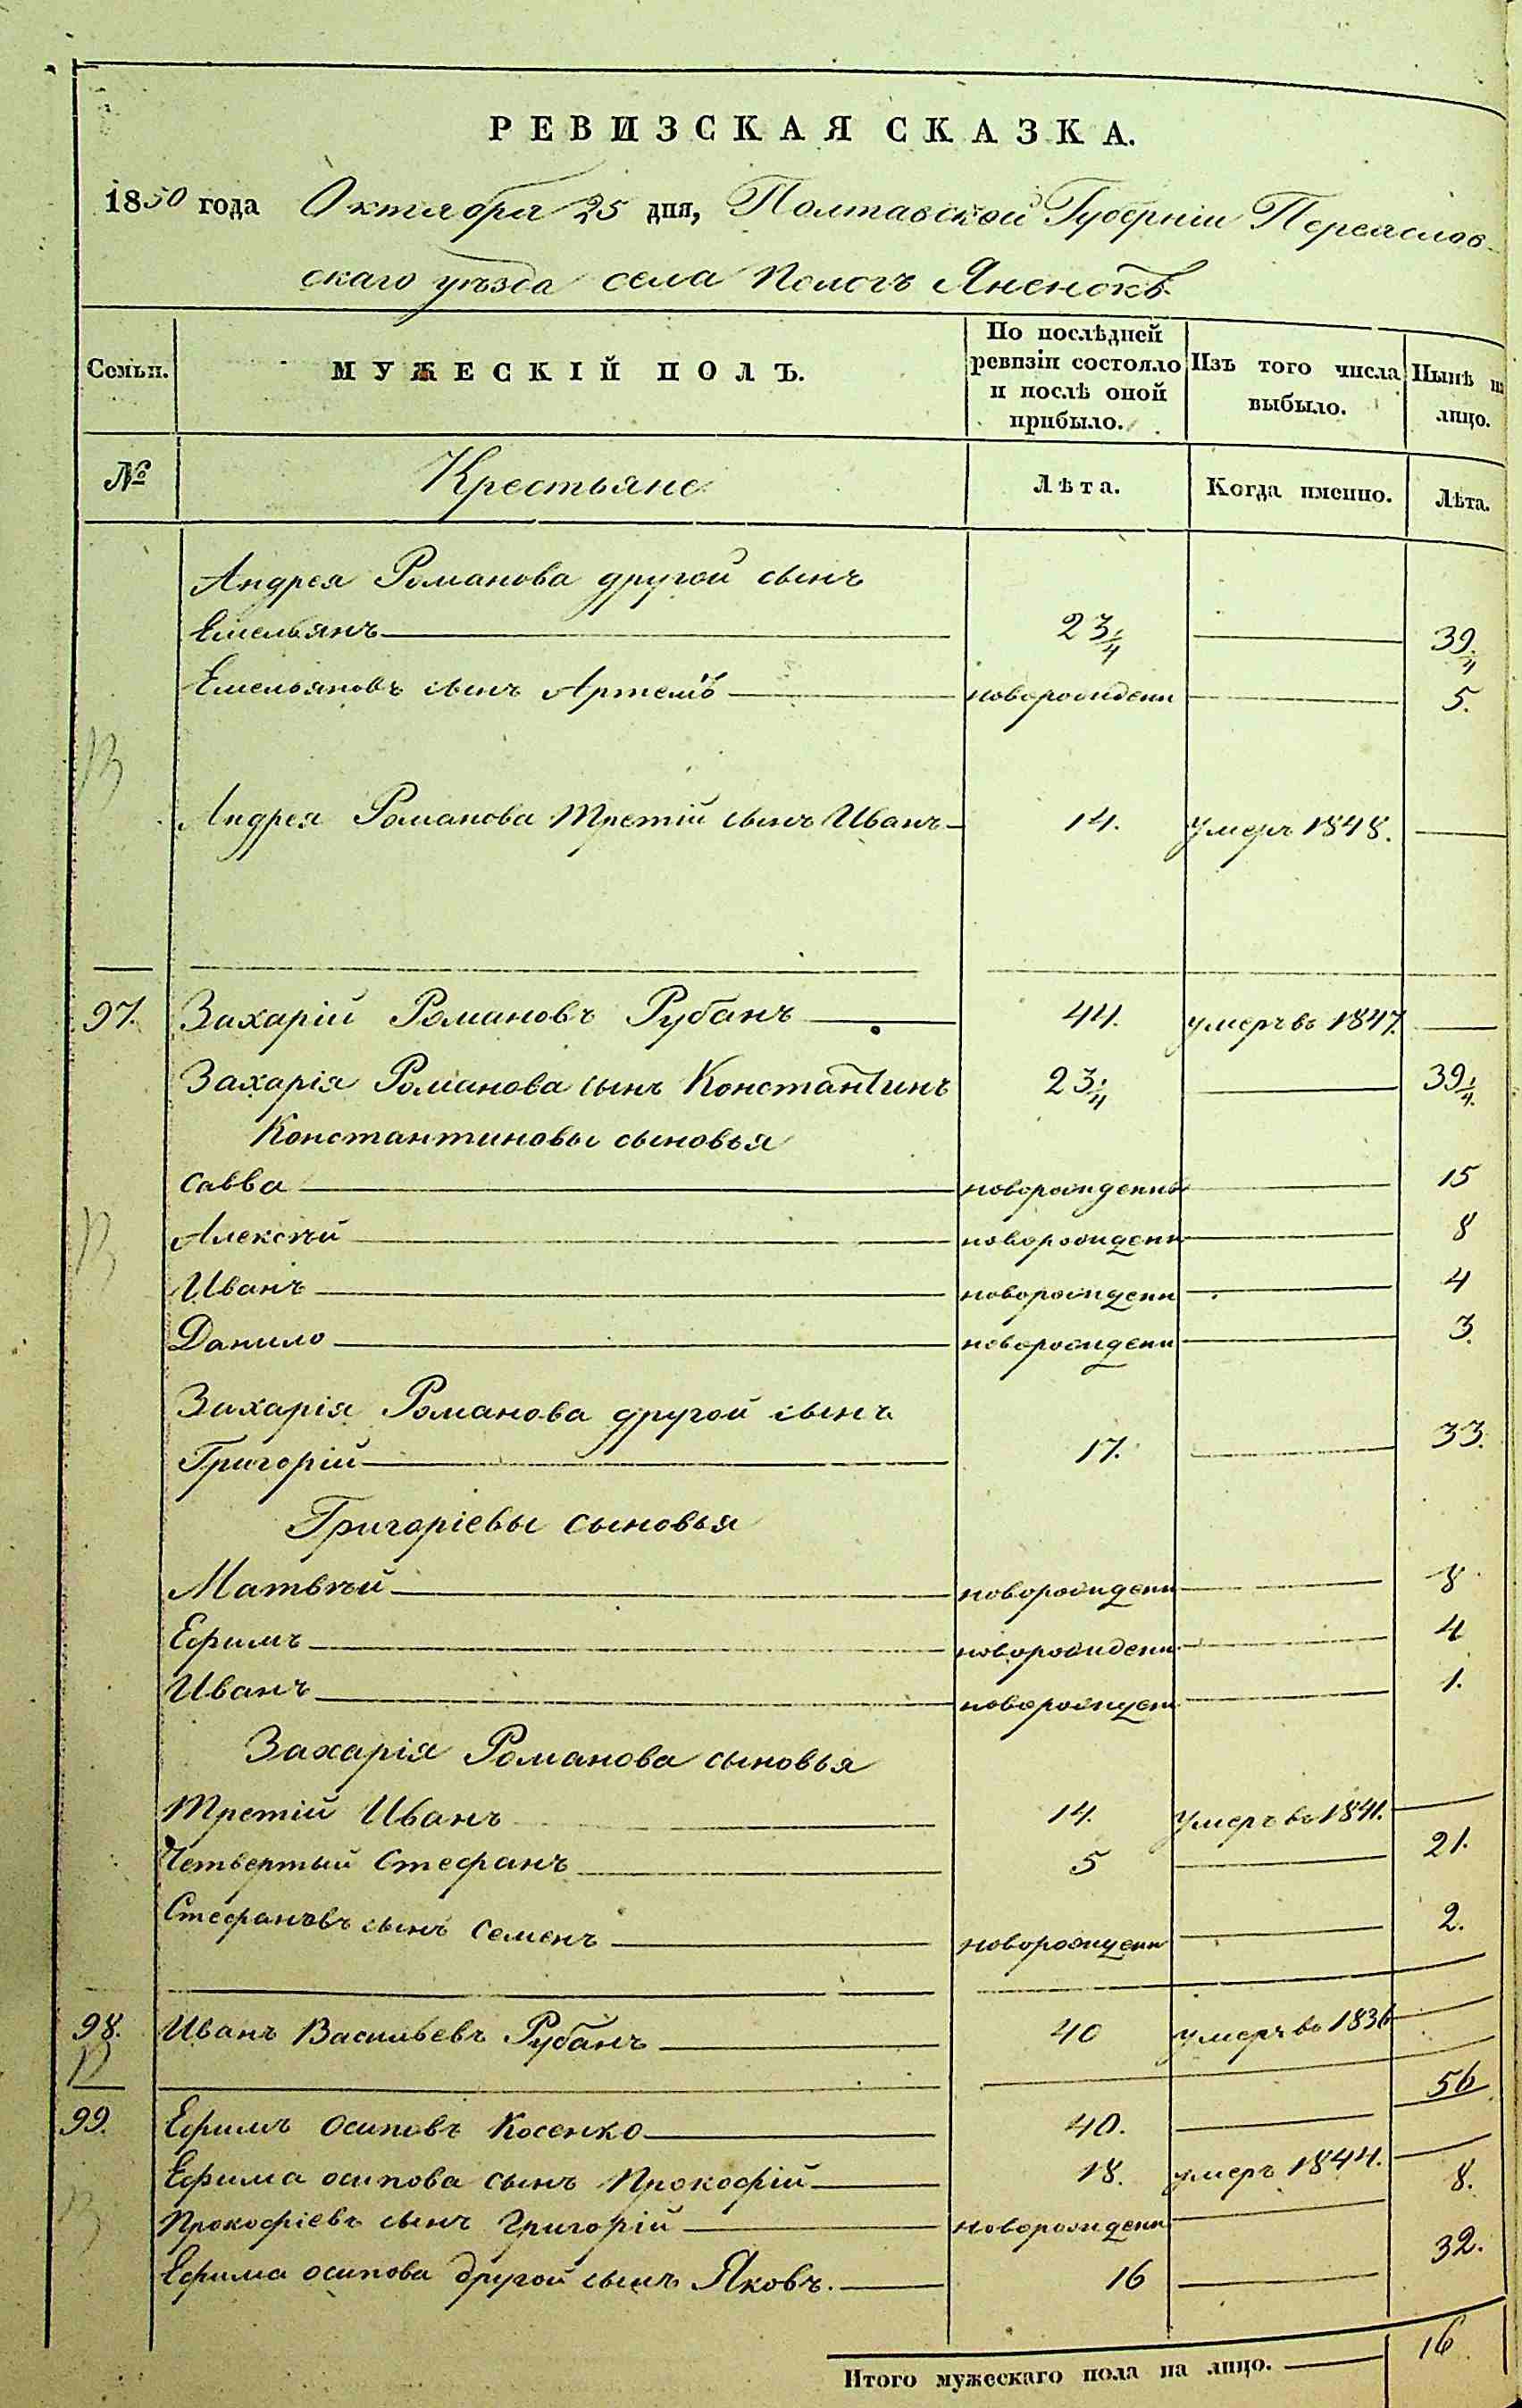 РЕВИЗСКАЯ СКАЗКА.
1850 года Октября 25 дня, Полтавской Губерніи Переяслов-
скаго уѣзда села Пологъ Яненокъ
Семьи. МУЖЕСКІЙ ПОЛЪ. По послѣдней ревизіи состояло и послѣ оной прибыло. Изъ того числа выбыло. Нынѣ на лицо.
№ Крестьяне Лѣта. Когда именно. Лѣта.
Андрея Романова другой сынъ
Емельянъ 23 1/4 39 1/4
Емельяновъ сынъ Артемъ новорожденн 5.
Андрея Романова Третій сынъ Иванъ 14. умеръ 1848.
97. Захарій Романовъ Рубанъ 44. умеръ въ 1847.
Захарія Романова сынъ Константинъ 23 1/4 39 1/4
Константиновы сыновья
Савва новорожденны 15
Алексѣй новорожденн 8
Иванъ новорожденн 4
Данило новорожденн 3.
Захарія Романова другой сынъ
Григорій 17. 33.
Григоріевы сыновья
Матвѣй новорожденн 8
Ефимъ новорожденн 4
Иванъ новорожден 1.
Захарія Романова сыновья
Третій Иванъ 14. умеръ въ 1841.
Четвертый Стефанъ 5 21.
Стефановъ сынъ Семенъ новорожденн 2.
98. Иванъ Васильевъ Рубанъ 40 умеръ въ 1836
99. Ефимъ Осиповъ Косенко 40. 56
Ефима Осипова сынъ Прокофій 18. умеръ 1844.
Прокофіевъ сынъ Григорій новорожденн 8.
Ефима Осипова другой сынъ Яковъ. 16 32.
Итого мужескаго пола на лицо. 16